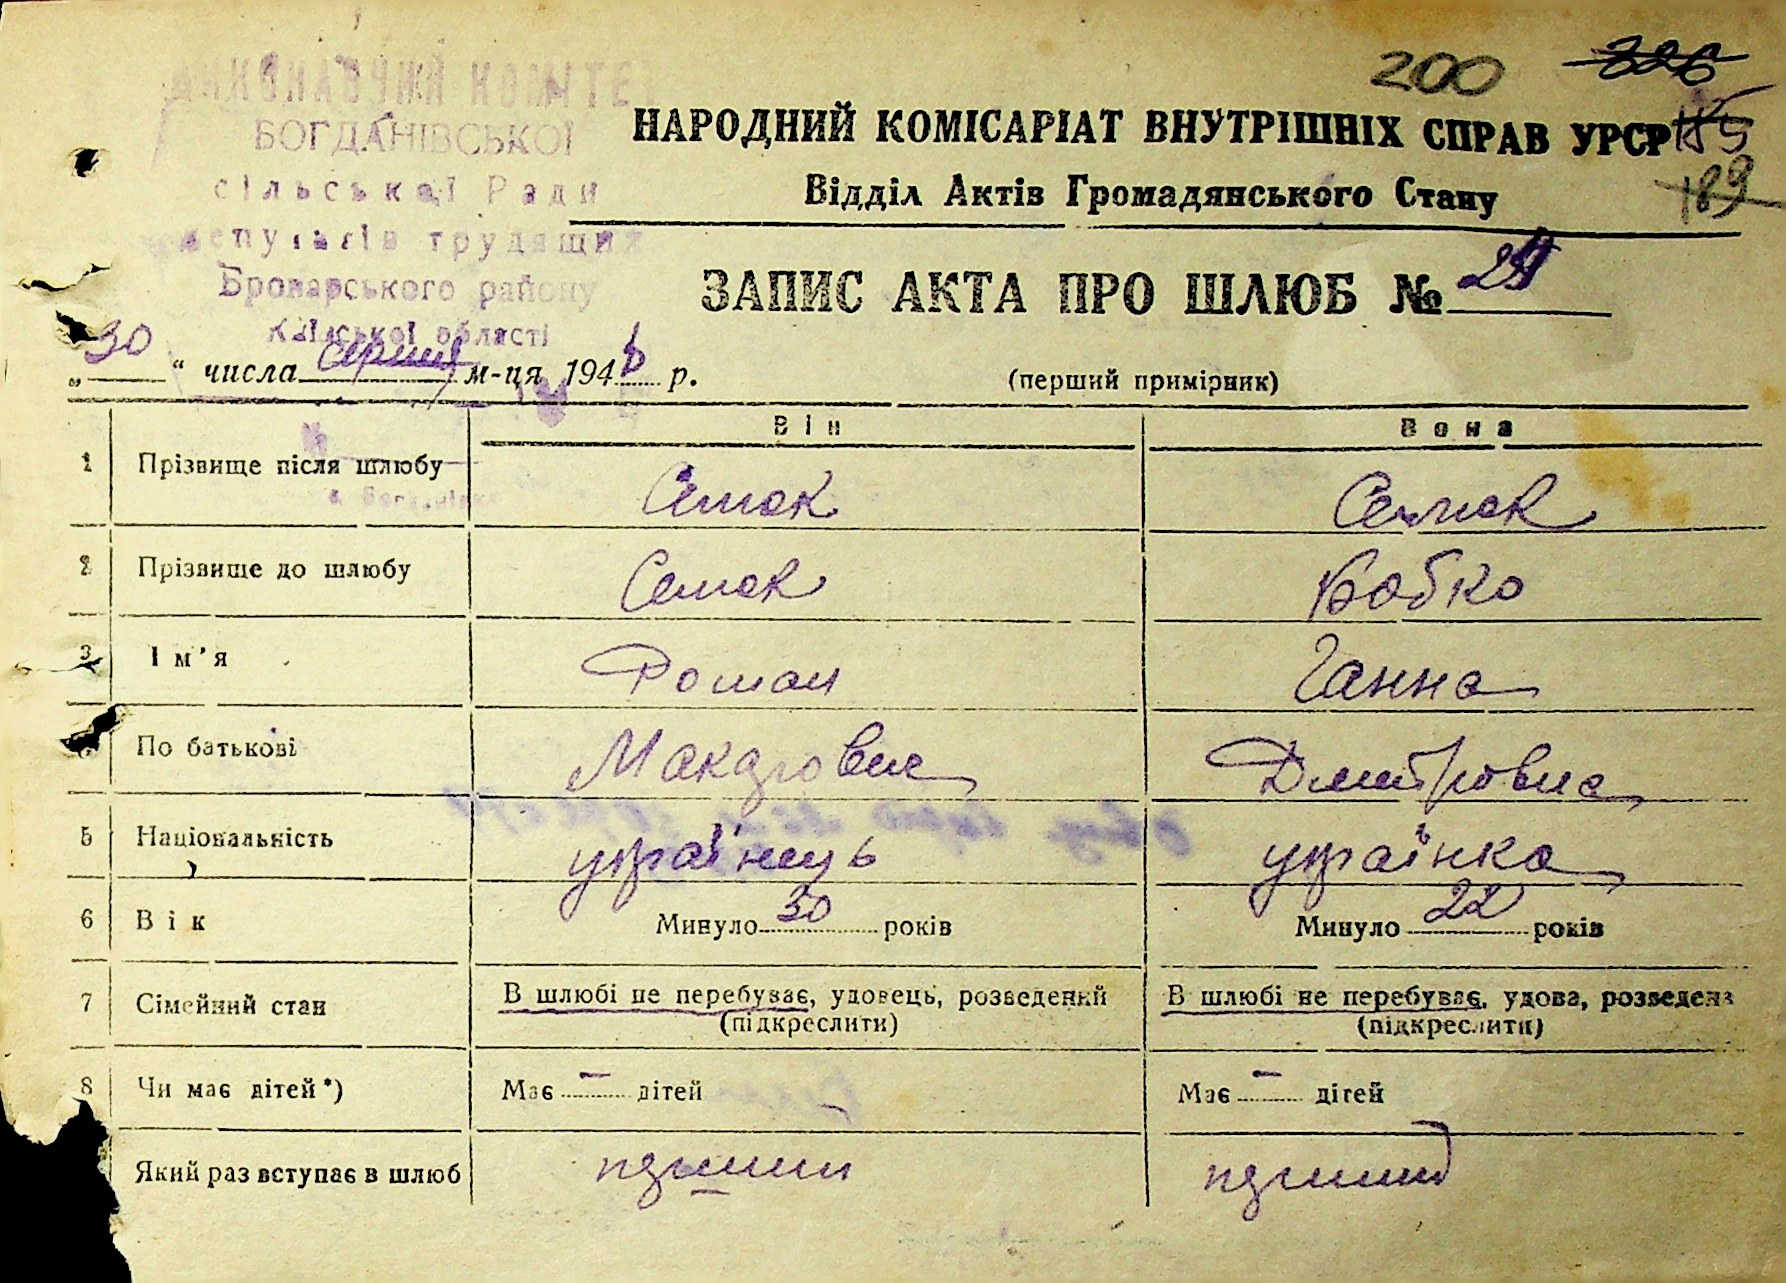 200 226
ВИКОНАВЧИЙ КОМІТЕ
БОГДАНІВСЬКОЇ
сільської Ради
депутатів трудящих
Броварського району
Київської області
НАРОДНИЙ КОМІСАРІАТ ВНУТРІШНІХ СПРАВ УРСР
189
Відділ Актів Громадянського Стану
ЗАПИС АКТА ПРО ШЛЮБ №
„30“ числа серпня м-ця 194 р.
(перший примірник)
Він Вона
1 Прізвище після шлюбу Семок Семок
2 Прізвище до шлюбу Семок Бобко
3 Ім'я Роман Ганна
По батькові Макарович Дмитровна
5 Національність українець українка
6 Вік Минуло 30 років Минуло 22 років
7 Сімейний стан В шлюбі не перебуває, удовець, розведений В шлюбі не перебуває, удова, розведена
(підкреслити) (підкреслити)
8 Чи має дітей*) Має — дітей Має — дітей
Який раз вступає в шлюб